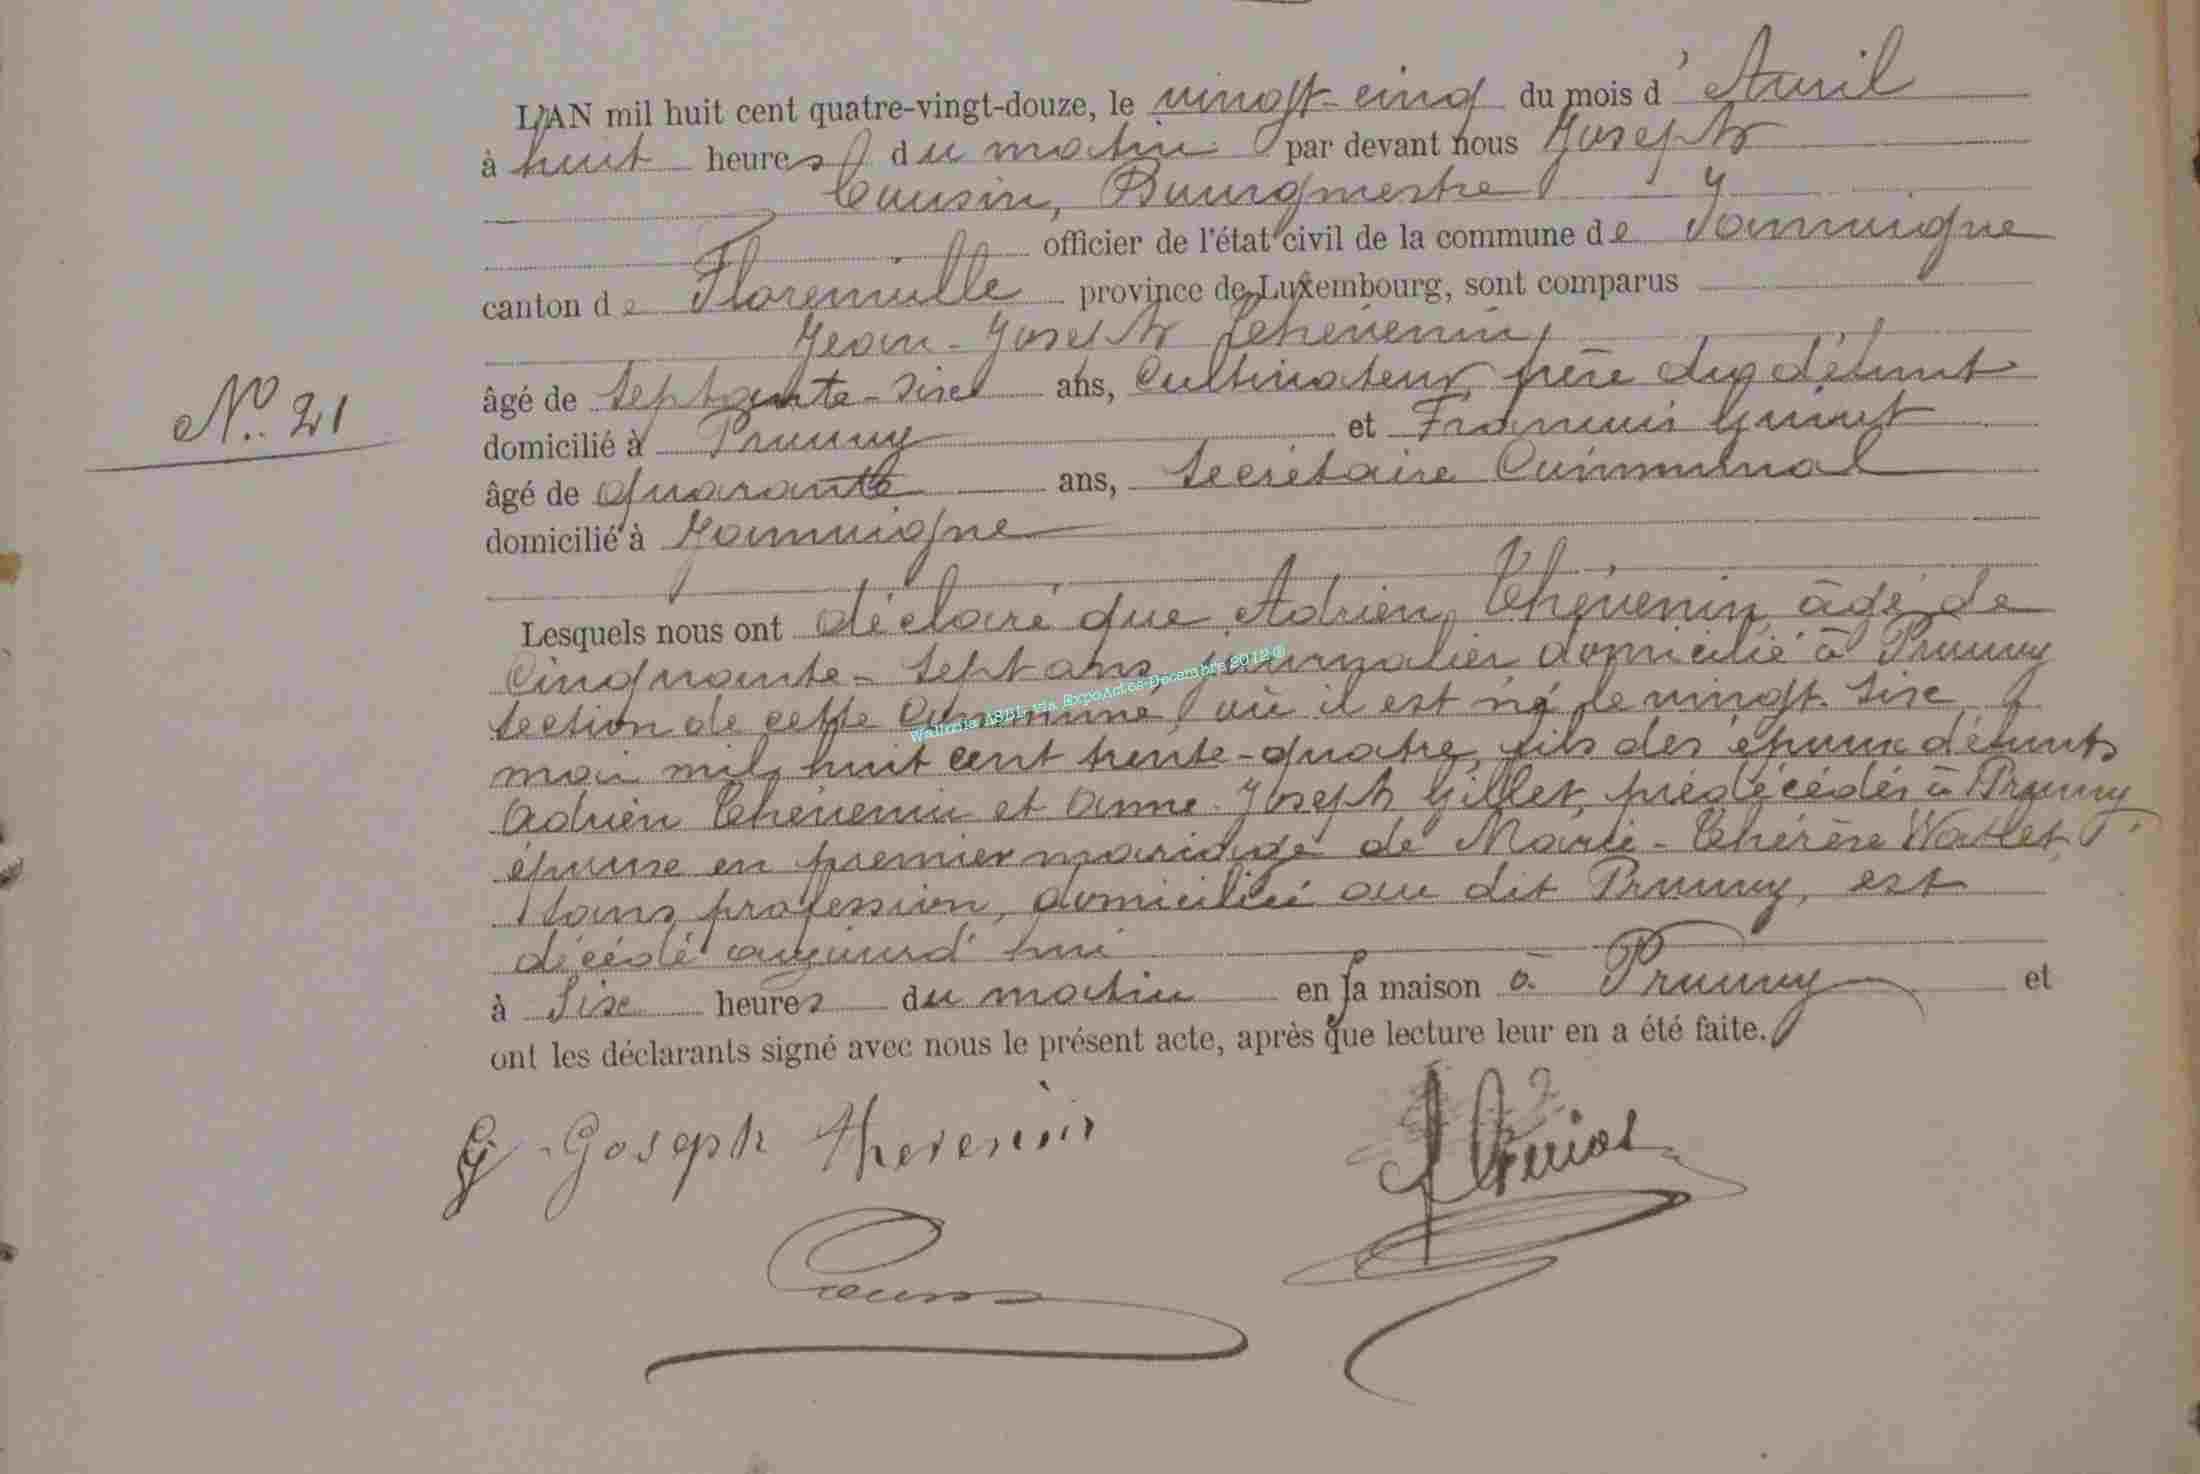 L'AN mil huit cent quatre-vingt-douze, le vingt-cinq du mois d'Avril
à huit heures du matin par devant nous Joseph
Cousin, Bourgmestre
officier de l'état civil de la commune de Jamoigne
canton de Florenville province de Luxembourg, sont comparus
Jean-Joseph Thévenin,
âgé de septante-six ans, Cultivateur, frère du défunt
N° 21
domicilié à Prouvy et François
âgé de quarante ans, secrétaire Communal
domicilié à Jamoigne
Lesquels nous ont déclaré que Adrien Thévenin, âgé de
cinquante-sept ans, journalier domicilié à Prouvy
section de cette Commune, où il est né le vingt-six
mai mil huit cent trente-quatre, fils des époux défunts
Adrien Thévenin et Anne-Joseph Gillet, prédécédés à Prouvy
époux en premier mariage de Marie-Thérèse Watlet,
sans profession, domiciliée au dit Prouvy, est
décédé aujourd'hui
à six heures du matin en sa maison à Prouvy et
ont les déclarants signé avec nous le présent acte, après que lecture leur en a été faite.
G-Goseph thevenin
Wallonia ASBL via ExpoActes-Décembre 2012 ©